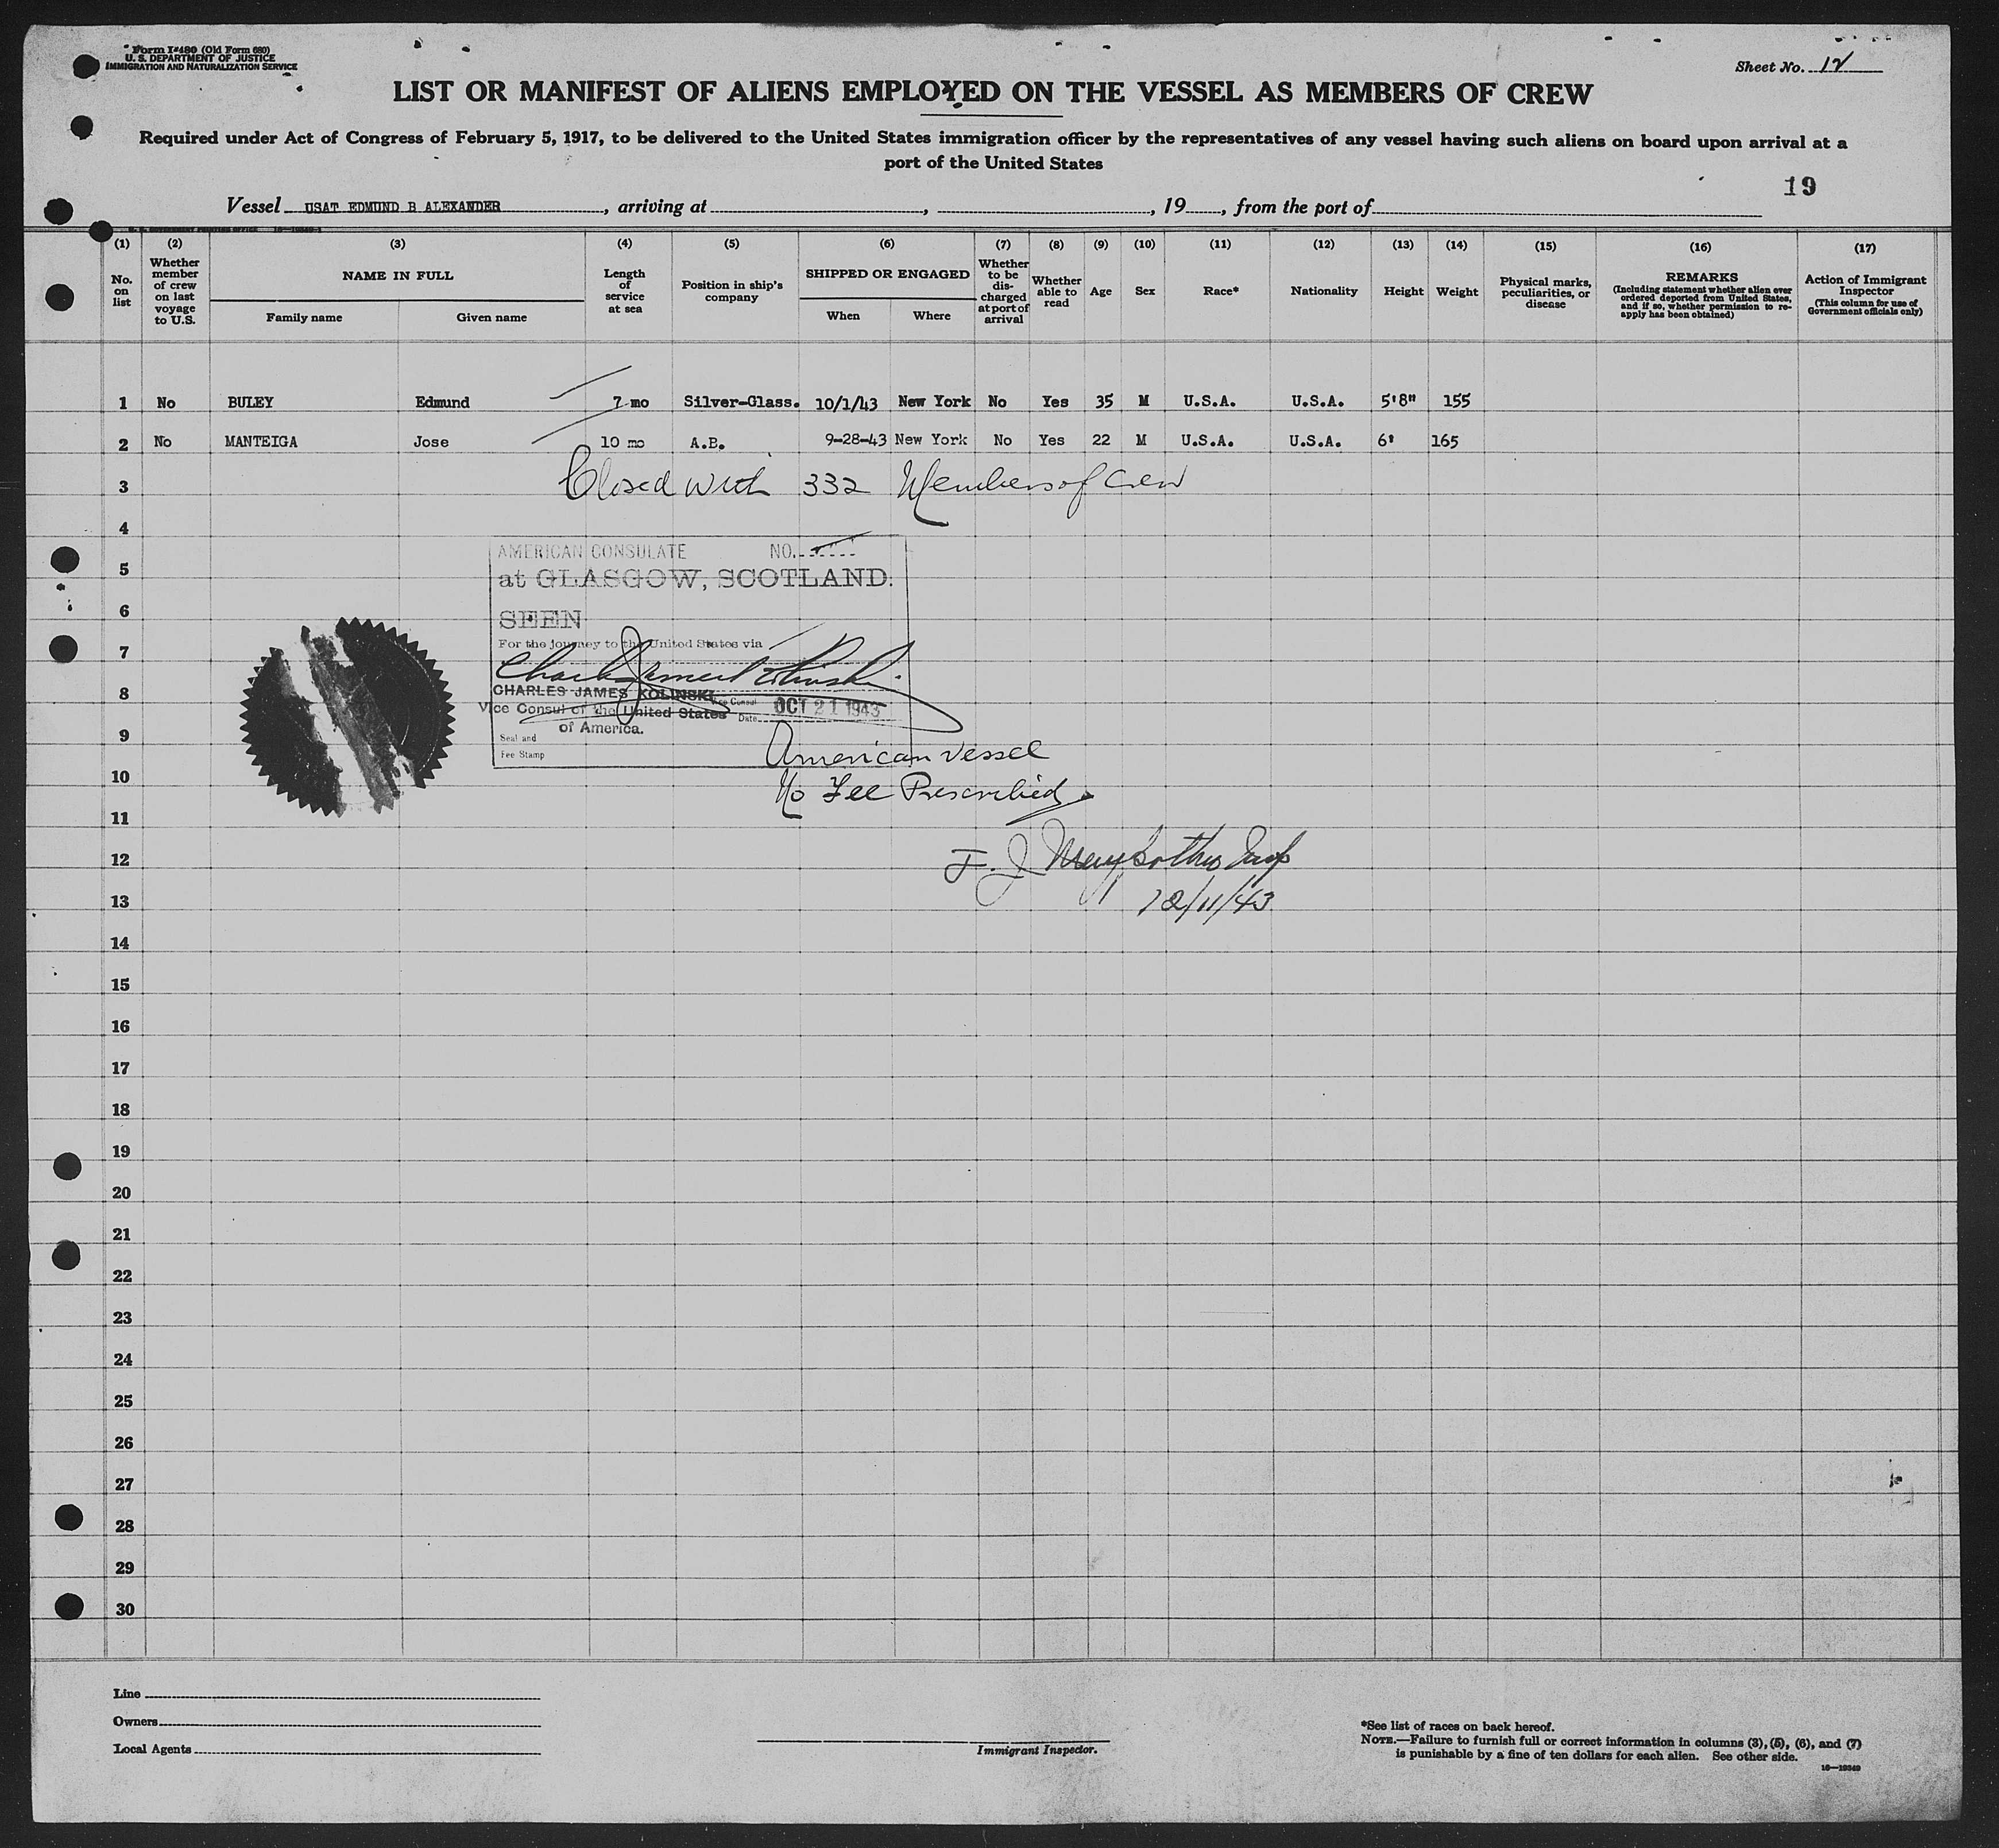 Form I-480 (Old Form 680)
U. S. DEPARTMENT OF JUSTICE
IMMIGRATION AND NATURALIZATION SERVICE
Sheet No. 12
LIST OR MANIFEST OF ALIENS EMPLOYED ON THE VESSEL AS MEMBERS OF CREW
Required under Act of Congress of February 5, 1917, to be delivered to the United States immigration officer by the representatives of any vessel having such aliens on board upon arrival at a
port of the United States
19
Vessel USAT EDMUND B ALEXANDER, arriving at , , 19 , from the port of
(1) (2) (3) (4) (5) (6) (7) (8) (9) (10) (11) (12) (13) (14) (15) (16) (17)
No. on list
Whether member of crew on last voyage to U.S.
NAME IN FULL
Family name Given name
Length of service at sea
Position in ship's company
SHIPPED OR ENGAGED
When Where
Whether to be discharged at port of arrival
Whether able to read
Age
Sex
Race*
Nationality
Height
Weight
Physical marks, peculiarities, or disease
REMARKS
(Including statement whether alien ever ordered deported from United States, and if so, whether permission to re-apply has been obtained)
Action of Immigrant Inspector
(This column for use of Government officials only)
1 No BULEY Edmund 7 mo Silver-Glass. 10/1/43 New York No Yes 35 M U.S.A. U.S.A. 5'8" 155
2 No MANTEIGA Jose 10 mo A.B. 9-28-43 New York No Yes 22 M U.S.A. U.S.A. 6' 165
3 Closed with 332 Members of Crew
4
AMERICAN CONSULATE NO.
5 at GLASGOW, SCOTLAND.
6 SEEN
For the journey to the United States via
7
8 CHARLES JAMES KOLINSKI
Vice Consul of the United States
of America.
Vice Consul
Date OCT 21 1943
9
Seal and
Fee Stamp
American vessel
10 No Fee Prescribed
11
12
13 12/11/43
14
15
16
17
18
19
20
21
22
23
24
25
26
27
28
29
30
Line
Owners
Local Agents
Immigrant Inspector.
*See list of races on back hereof.
NOTE.—Failure to furnish full or correct information in columns (3), (5), (6), and (7)
is punishable by a fine of ten dollars for each alien. See other side.